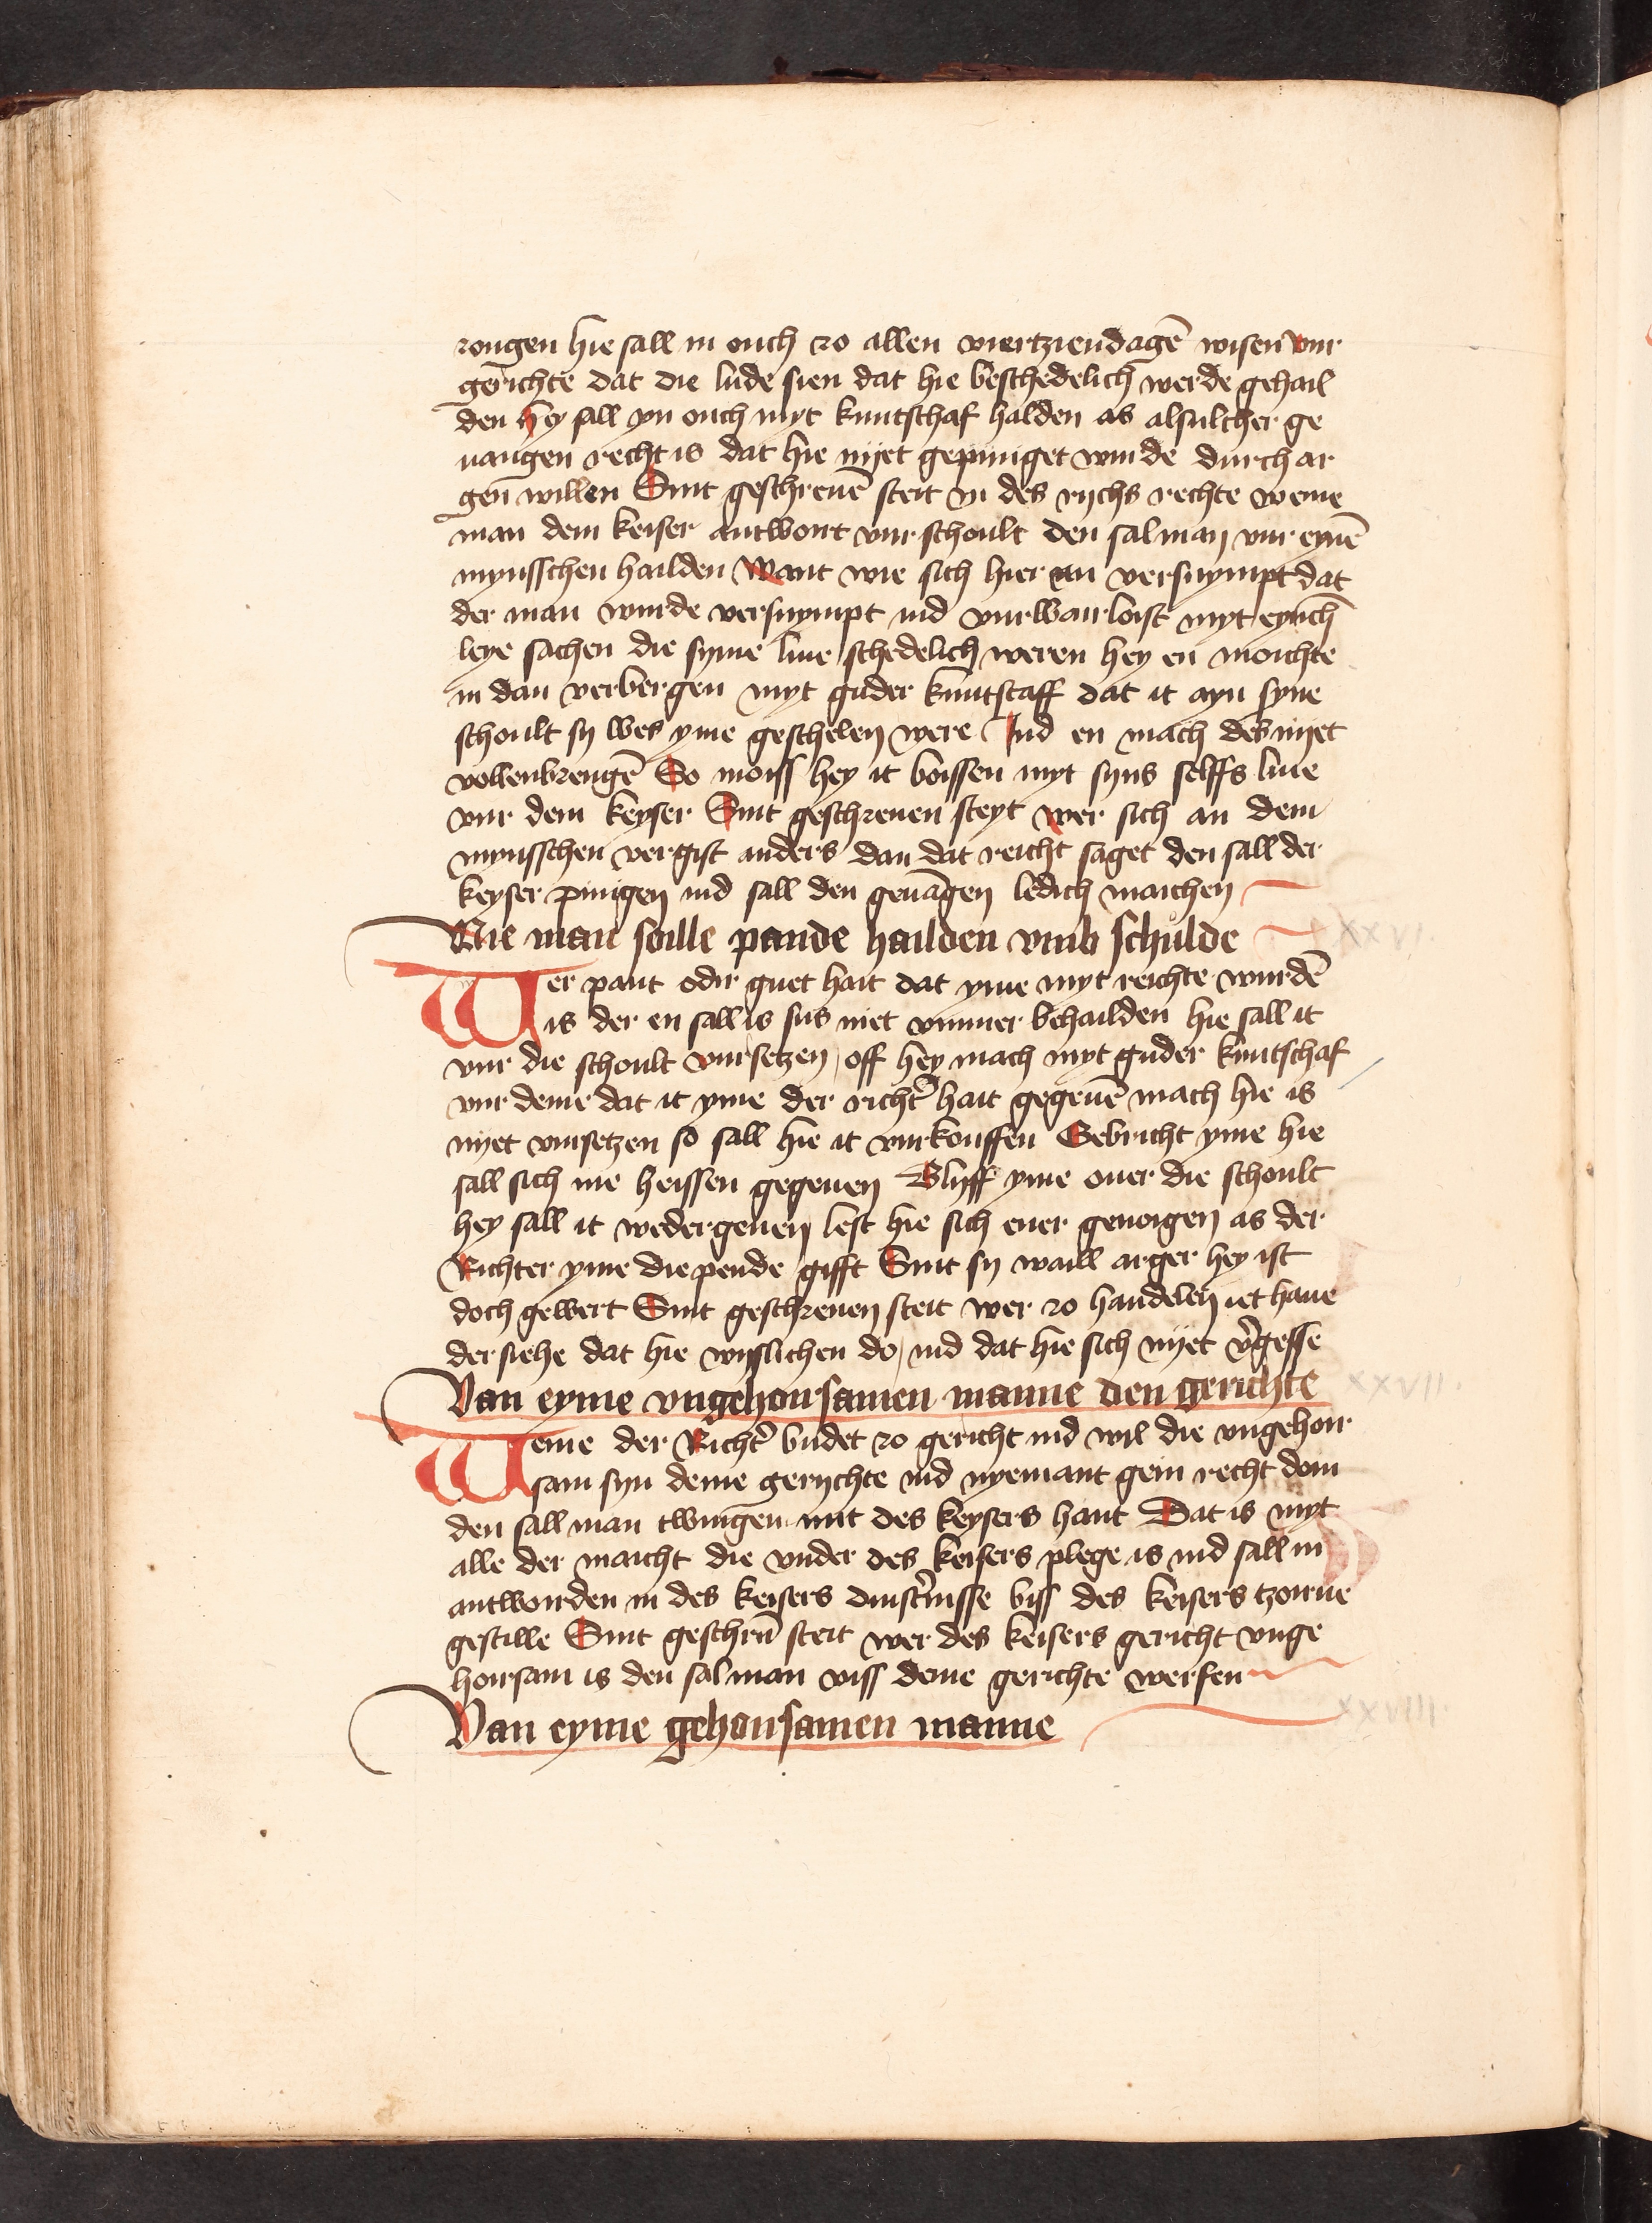 zongen hie sall in ouch zo allen viertziendagē wisen vur
gerichte dat die lude sien dat hie beschedelich werde gehail
den hey sall yn ouch myt kuntschaf halden as alsulcher ge
uangen recht is dat hie nyet gepiniget wurde durch ar
gen willen Sint geschreuē steit in des rychs rechte weme
man dem keiser antwort vur schoult den sal man vur eynē
mynsschen hailden Want wie sich hier an versuympt dat
der man wurde versuympt ind vurwairloist myt eynch
leye sachen die syme liue schedelich weren hey en moichte
in dan verbergen myt guder kuntscaff dat it ayn syne
schoult sy wes yme geschelen were Ind en mach des nyet
vollenbrengē So moiss hey it boissen myt syns selffs liue
vur dem keyser Sint geschreuen steyt wer sich an dem
mynsschen vergist anders dan dat reicht saget den sall der
keyser pinigen ind sall den geuāgen ledich maichen
Wie man soille pande hailden vmb schulde
XXVI.
Wer pant odir guet hait dat yme myt reichte wurdē
is der en sall is sus niet vmmer behailden hie sall it
vur die schoult vursetzen off hey mach myt guder kuntschaf
vur deme dat it yme der richt' hait gegeuē mach hie is
nyet vursetzen so sall hie it vurkouffen Gebricht yme hie
sall sich me heissen gegeuen Blyff yme ouer die schoult
hey sall it wedergeuen lest hie sich euer genoigen as der
Richter yme die pende gifft Sint sy waill arger hey ist
doch gewert Sint geschreuen steit wer zo handelen iet haue
der siehe dat hie wyslichen do, ind dat hie sich nyet v'gesse
Van eyme vngehoirsamen manne den gerichte
XXVII.
Weme der Richt' budet zo gericht ind wil die vngehoir
sam syn deme gerychte ind nyemant gein recht doin
den sall man twingen mit des keysers hant Dat is myt
alle der maicht die vnder des keisers plege is ind sall in
antworden in des keisers dinst'nisse biss des keisers tzorne
gestille Sint geschrū steit wer des keisers gericht vnge
hoirsam is den sal man viss deme gerichte werfen
Van eyme gehoirsamen manne
XXVIII.